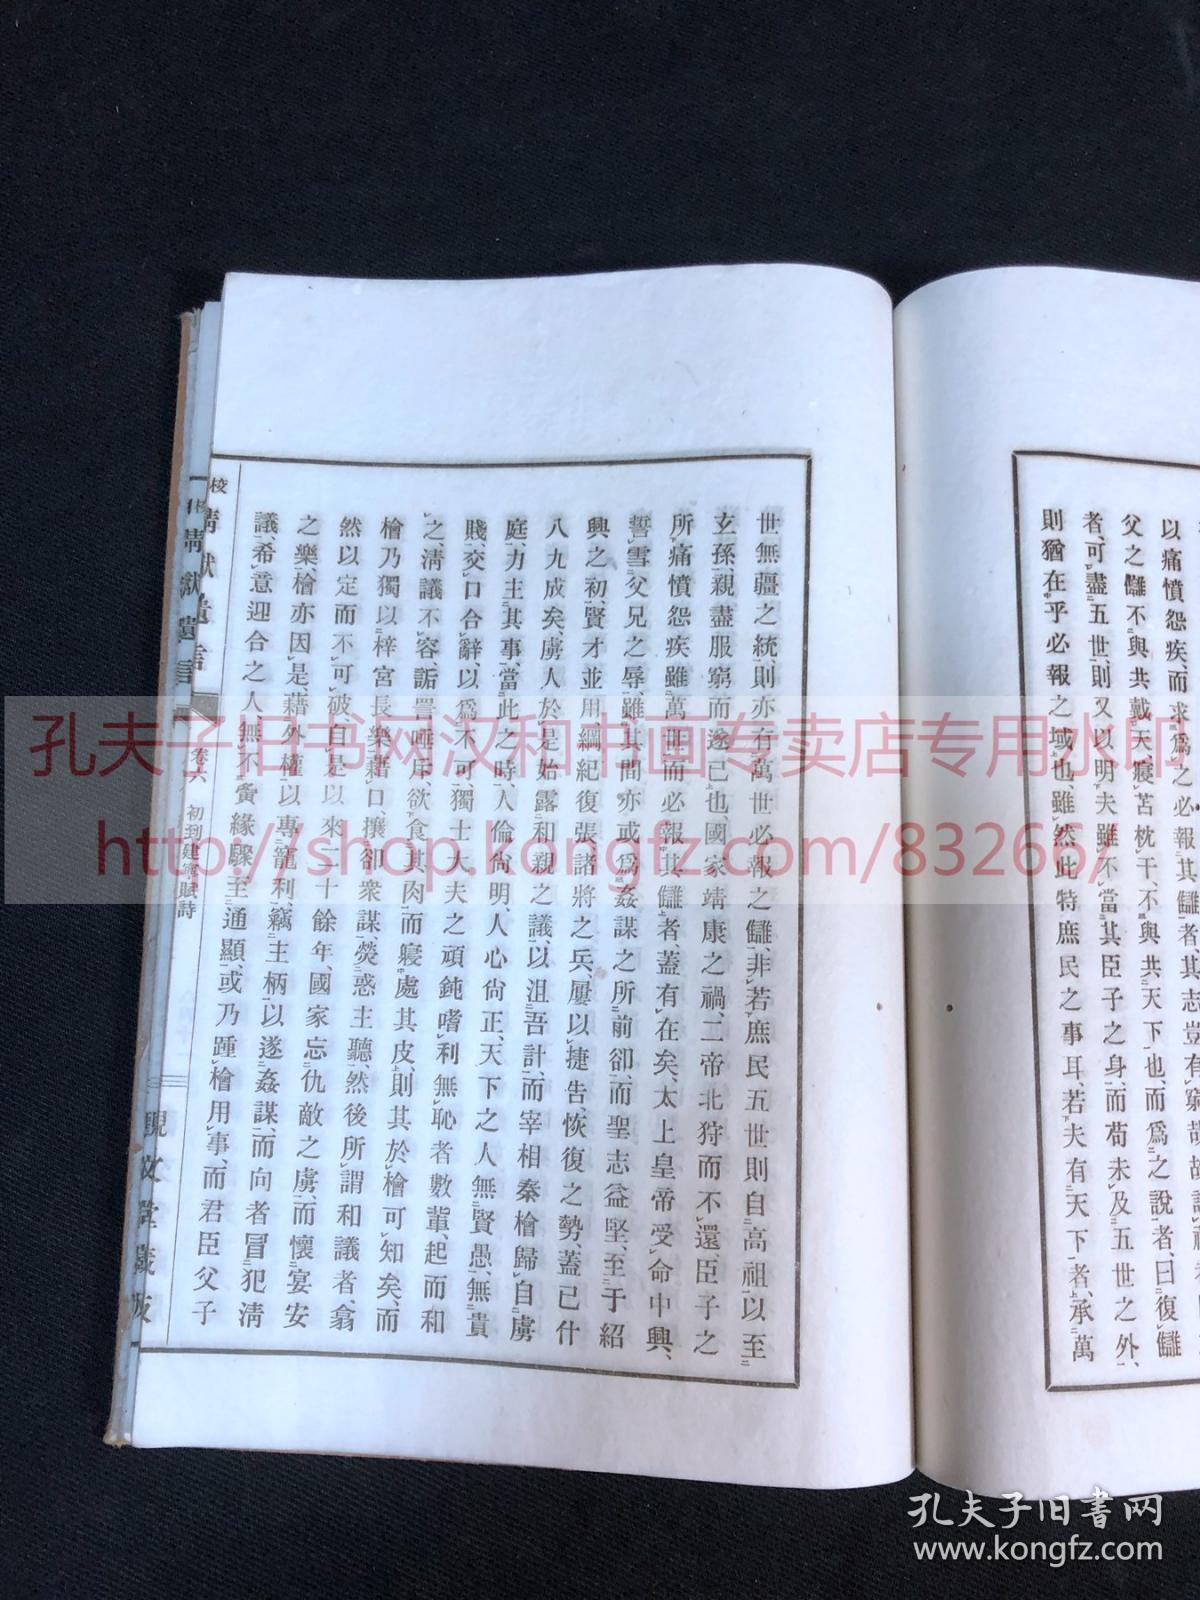 以痛憤怨疾、而求爲之必報其讎者、其志豈有窮
父之讎不與共戴天、寢苫枕干、不與共天下也、而爲之說者、曰復讎
者、可盡五世、則又以明夫雖不當其臣子之身、而苟未及五世之外、
則猶在乎必報之域也、雖然此特庶民之事耳、若夫有天下者、承萬
世無疆之統、則亦有萬世必報之讎、非若庶民五世則自高祖以至
玄孫、親盡服窮而遂已也、國家靖康之禍、二帝北狩而不還、臣子之
所痛憤怨疾雖萬世而必報其讎者、蓋有在矣、太上皇帝受命中興、
誓雪父兄之辱、雖其間亦或爲姦謀之所前卻、而聖志益堅、至于紹
興之初、賢才並用、綱紀復張、諸將之兵、屢以捷告、恢復之勢、蓋已什
八九成矣、虜人於是始露和親之議、以沮吾計、而宰相秦檜歸自虜
庭、力主其事、當此之時、人倫尙明、人心尙正、天下之人、無賢愚、無貴
賤、交口合辭、以爲不可、獨士大夫之頑鈍嗜利無恥者數輩、起而和
之、淸議不容、詬詈唾斥、欲食其肉、而寢處其皮、則其於檜可知矣、而
檜乃獨以梓宮長樂藉口、攘卻衆謀、熒惑主聽、然後所謂和議者、翕
然以定而不可破、自是以來二十餘年、國家忘仇敵之虜、而懷宴安
之樂、檜亦因是、藉外權以專寵利、竊主柄以遂姦謀、而向者冒犯淸
議、希意迎合之人、無不夤緣驟至通顯、或乃踵檜用事、而君臣父子
校 靖獻遺言
卷六 初到建寧賦詩
觀文堂藏版
靖獻遺言
孔夫子旧书网汉和书画专卖店专用水印
http://shop.kongfz.com/83266/
孔夫子旧书网
www.kongfz.com